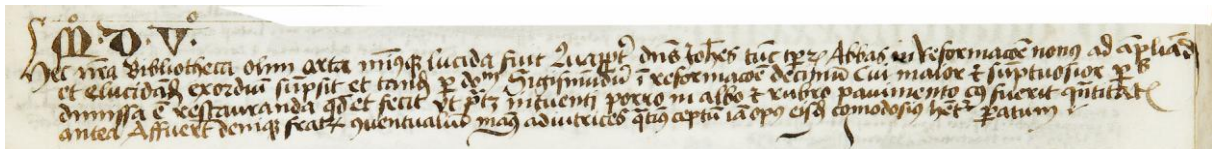 M · D · V ·
Hec nra Bibliothecā olim arta minusq lucida fuit Quappt dns Johes tuc tpr Abbas in Reformacōe nonus ad apliād
et elucidad exordiū supsit et tand per dom Sigismūdū ī reformacōe decimū Cui maior et suptuosior ps
dimissa ē restauranda qd et fecit Vt ptz intuenti porro in albo et rubro pavimento cuius fuerit quītitate
antea Affuert deniq fratr conventualiū manus adiutrices qtius ceptū iā opus eisd comodosius het patum